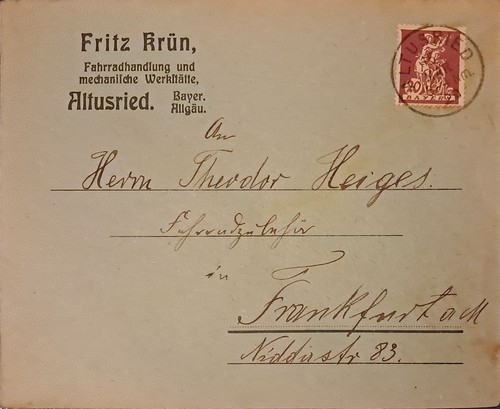 Fritz Krün,
Fahrradhandlung und
mechanische Werkstätte,
Altusried. Bayer. Allgäu.
ALTUSRIED
BAYERN
An
Herrn Theodor Heiges.
Fahrradzubehör
in
Frankfurt a M
Niddastr 83.